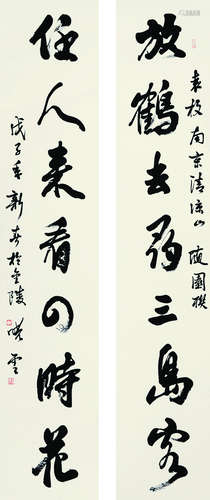 袁枚南京清凉山随園聯
放鶴去尋三島客
任人来看四時花
戊子年新春於金陵